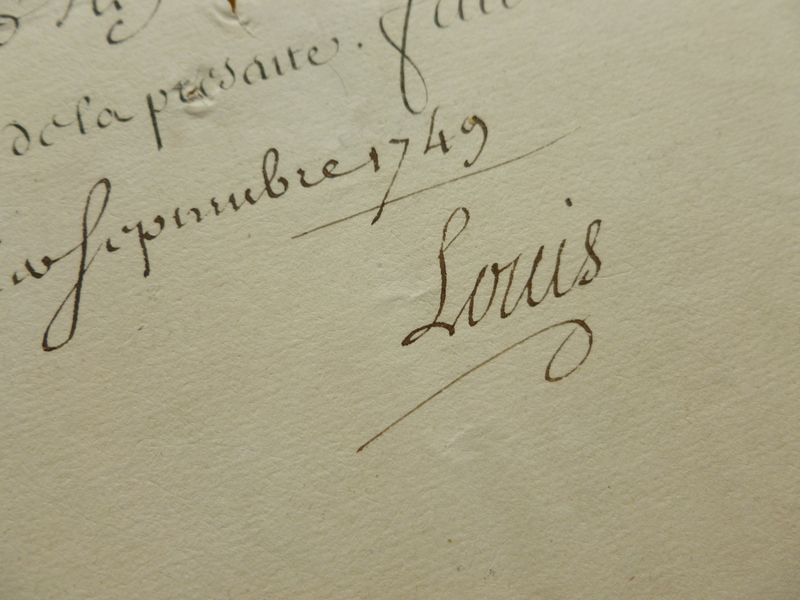 de la presente. fait
Septembre 1749
Louis